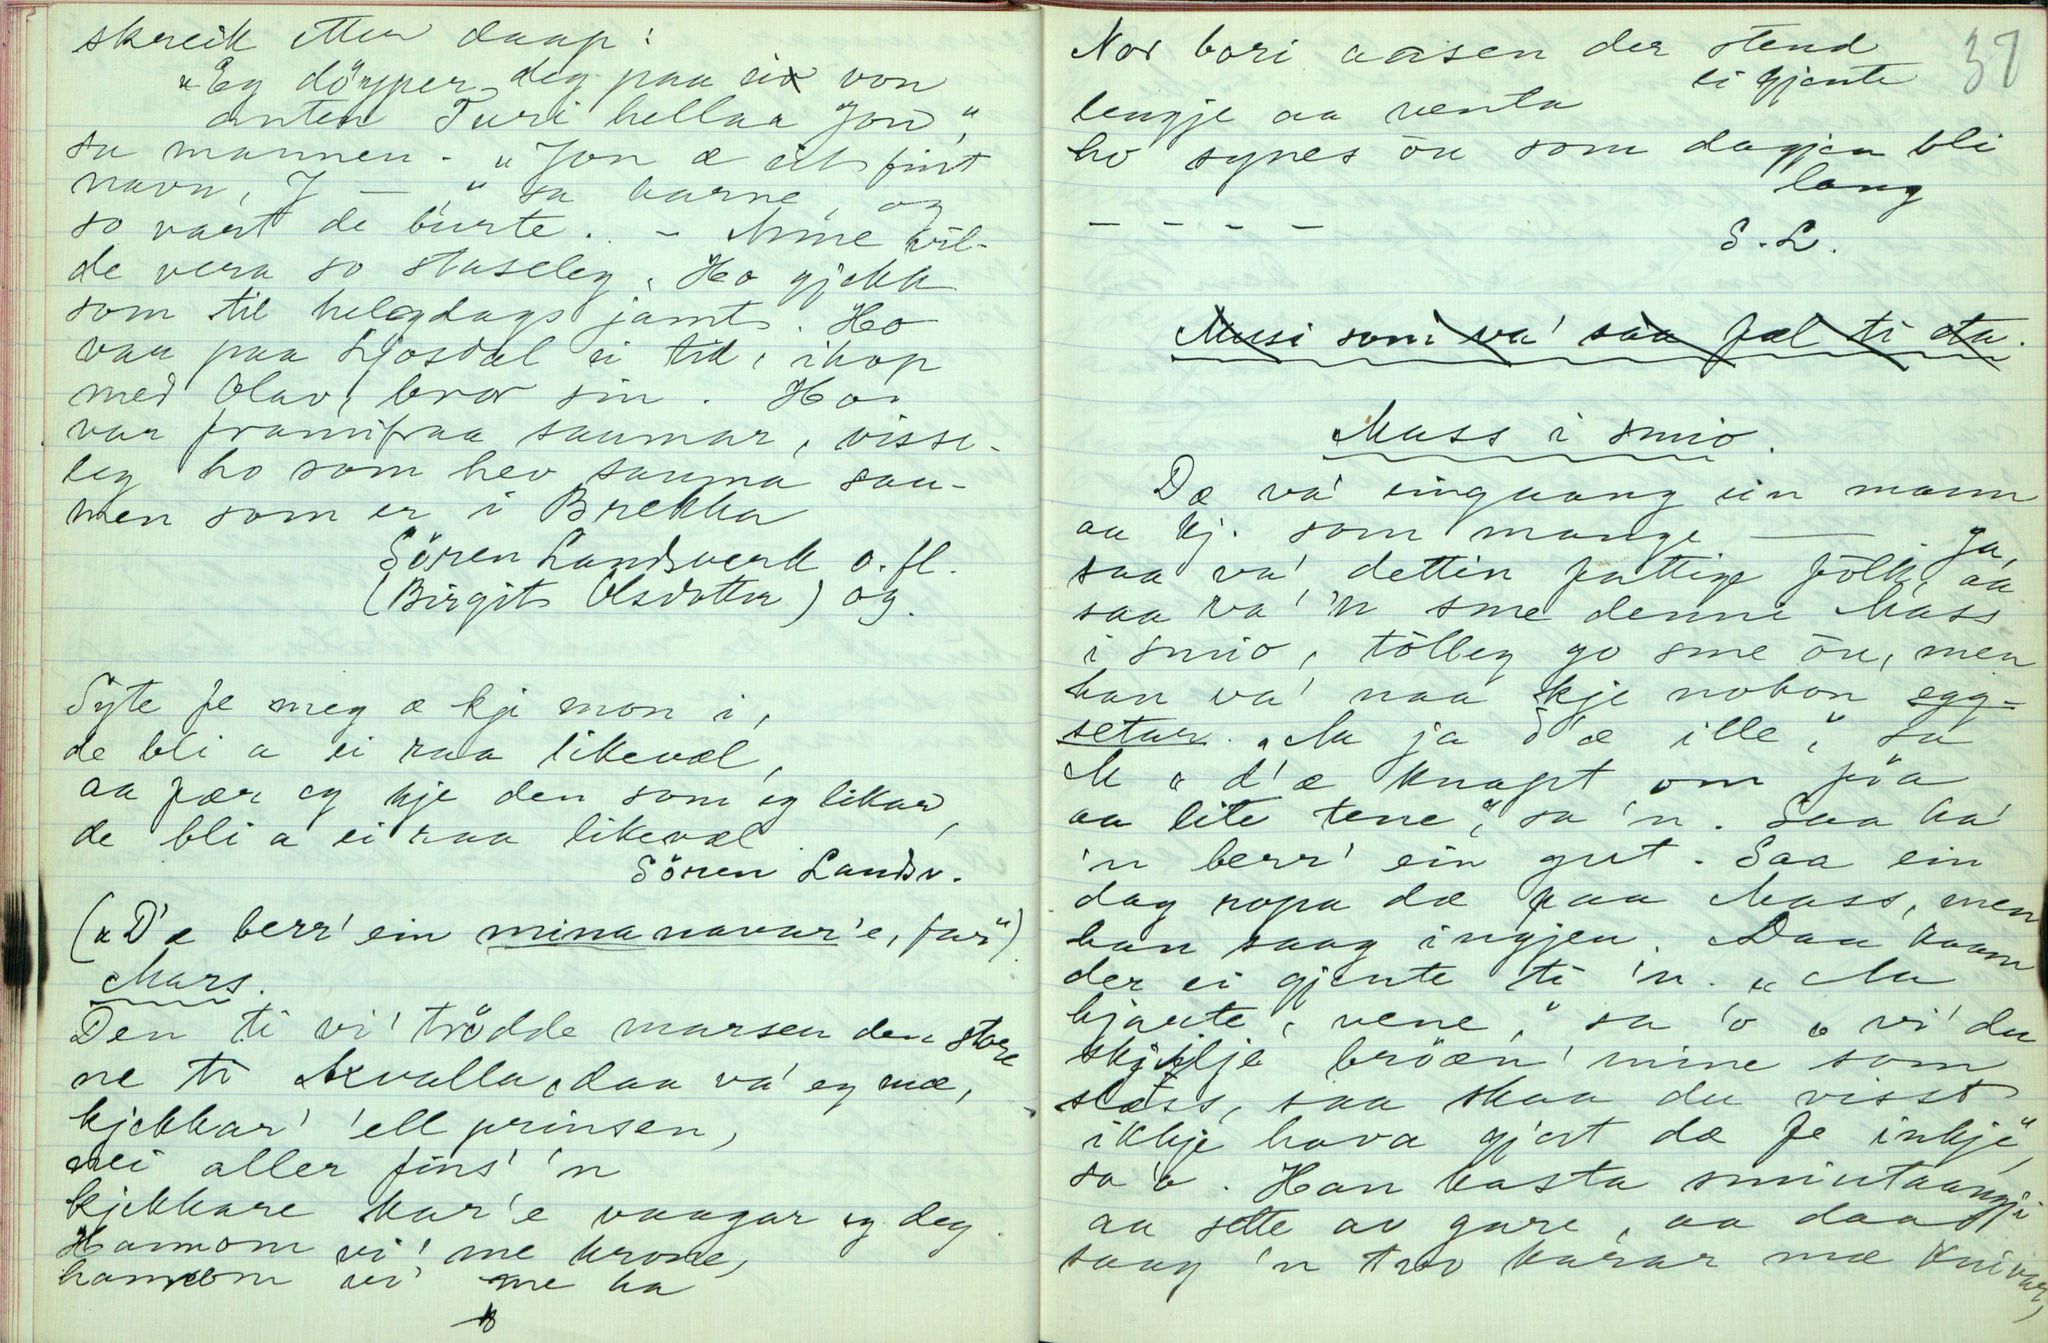 skreik etter daap:
"Eg döyper deg paa ei von
anten Turi hellaa Jon",
sa mannen. - "Jon æ eit fint
navn, J — " sa barne, og
so vart de burte. - Mine vil-
de vera so staseleg. Ho gjekk
som til helgdags jamt. Ho
var paa Ljosdal ei tid, ihop
med Olav, bror sin. Ho
var framifraa saumar, visse-
leg ho som hev sauma sau-
men som er i Brekka
Sören Landsverk o. fl.
(Birgit Olsdotter) og.
Syte fe meg æ kje mon i,
de bli a ei raa likevæl,
aa fær eg kje den som eg likar,
de bli a ei raa likevæl.
Sören Landsv.
("D'æ berr' ein minanavar'e, far")
Mars.
Den ti vi' trödde marsen den store
ne ti Axvalla, daa va' eg mæ,
kjekkar' 'ell prinsen,
nei aller fins' 'n
kjekkare kar'e vaagar eg deg.
Hannom vi' me krone,
hannom vi' me ha
Nor bori aasen der stend
ei gjente
lengje aa venta
ho synes ou som dagjen bli
lang
- - - -
S. L.
Musi som va' saa fæl ti eta.
Mass i smio.
Dæ va' eingaang ein mann
aa kj. som mange — ja,
saa va' dettin fattige fölk, aa
saa va' 'n sme denne Mass
i smio, tölleg go sme ou, men
han va' naa kje nokon egg-
setar. "Aa ja d'æ ille", sa
M "d'æ knapt om föa
aa lite tene", sa 'n. Saa ha'
'n berr' ein gut. Saa ein
dag ropa dæ paa Mass, men
han saag ingjen. Daa kaam
der ei gjente ti 'n. "Aa
kjære, vene," sa 'o "vi' du
skjilje bröan' mine som
slæss, saa skaa du visst
ikkje hava gjort dæ fe inkje",
sa 'o. Han kasta smiutaangji
aa sette av gare, aa daa
saag 'n tvo karar mæ knivar,
37